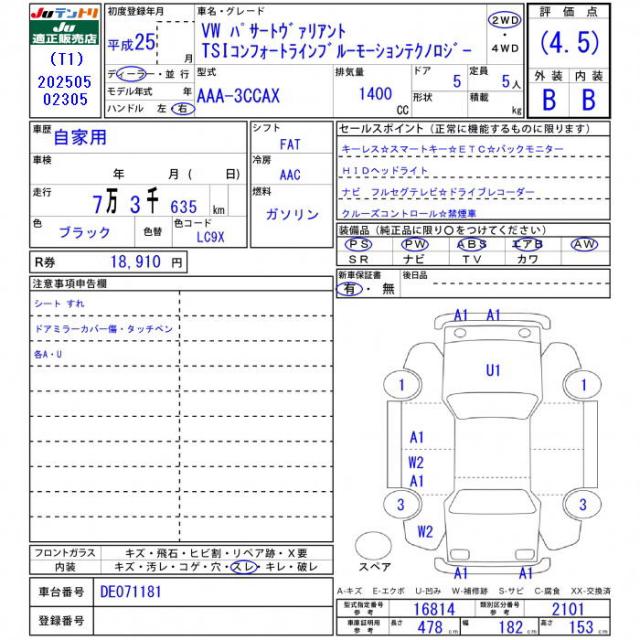 Juテントリ
Ju適正販売店
(T1)
202505
02305
初度登録年月
平成25 月
ディーラー・並行
モデル年式 年
ハンドル 左・右
車名・グレード
VW パサートヴァリアント
TSIコンフォートラインブルーモーションテクノロジー
2WD
・
4WD
型式
AAA-3CCAX
排気量
1400
CC
ドア
5
形状
定員
5人
積載
kg
評価点
(4.5)
外装 内装
B B
車歴
自家用
車検
年 月( 日)
走行
7万3千635 km
色
ブラック
色替
色コード
LC9X
シフト
FAT
冷房
AAC
燃料
ガソリン
セールスポイント(正常に機能するものに限ります)
キーレス☆スマートキー☆ETC☆バックモニター
HIDヘッドライト
ナビ フルセグテレビ☆ドライブレコーダー
クルーズコントロール☆禁煙車
装備品(純正品に限り○をつけてください)
PS PW ABS エアB AW
SR ナビ TV カワ
R券 18,910 円
新車保証書
有・無
後日品
注意事項申告欄
シート すれ
ドアミラーカバー傷・タッチペン
各A・U
A1 A1
U1
1 1
A1
W2
A1
3 3
W2
A1 A1
スペア
フロントガラス キズ・飛石・ヒビ割・リペア跡・X要
内装 キズ・汚レ・コゲ・穴・スレ・キレ・破レ
A-キズ E-エクボ U-凹み W-補修跡 S-サビ C-腐食 XX-交換済
車台番号 DE071181
登録番号
型式指定番号 参考 16814 類別区分番号 参考 2101
車庫証明用 参考 長さ 478 cm 幅 182 cm 高さ 153 cm